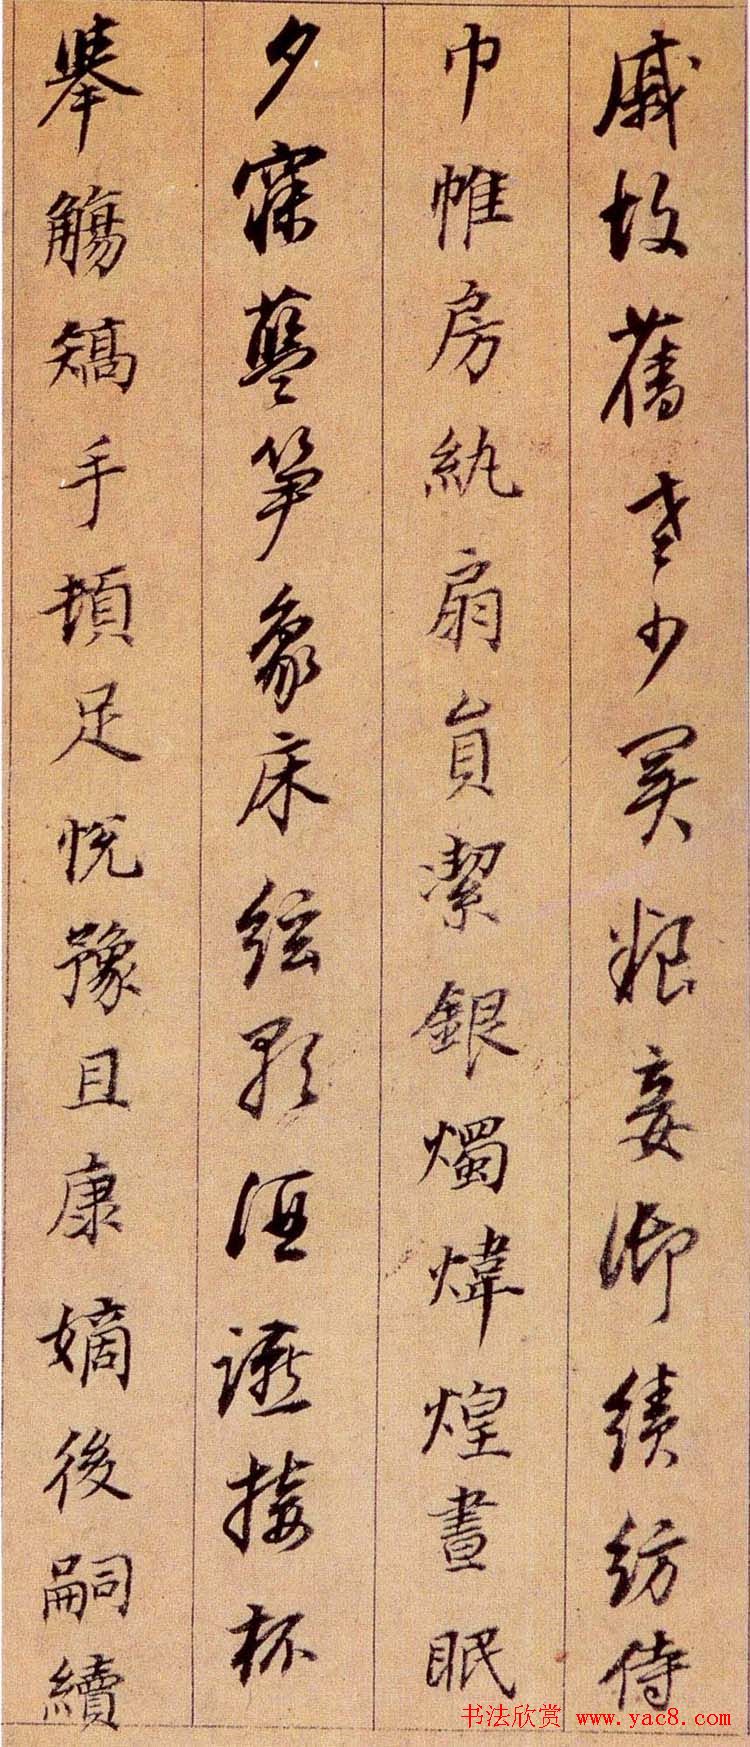 戚故舊老少異粮妾御績紡侍
巾帷房紈扇員潔銀燭煒煌晝眠
夕寐藍筍象床絃歌酒讌接杯
舉觴矯手頓足悅豫且康嫡後嗣續
书法欣赏 www.yac8.com